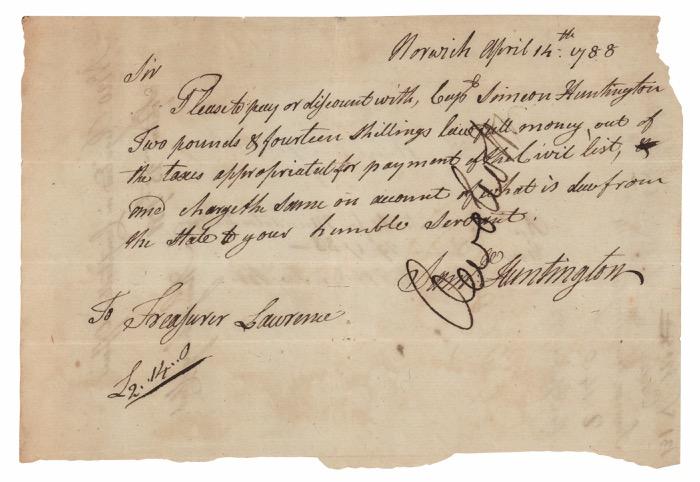 Norwich April 14th. 1788
Sir
Please to pay or discount with, Capt Simeon Huntington
Two pounds & fourteen shillings lawfull money, out of
the taxes appropriated for payment of the Civil list,
and charge the same on account of what is due from
the State to your humble Servant.
Saml Huntington
To Treasurer Lawrence
£2..14..0